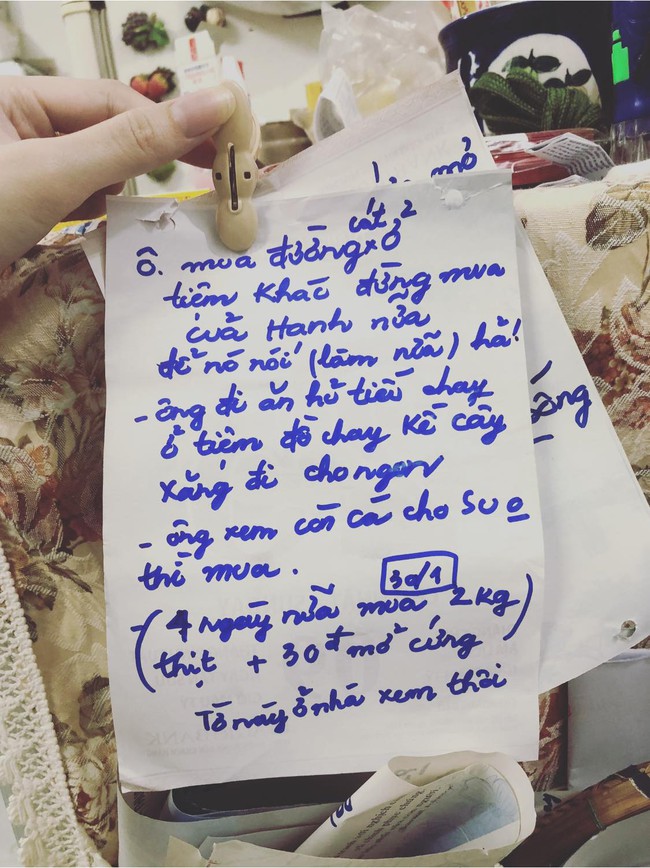 mỏ
cát
Ô. mua đường ở
tiệm khác đừng mua
của Hạnh nữa
để nó nói (làm nữa) hả!
- ông đi ăn hủ tiếu chay
ở tiệm đồ chay kế cây
xăng đi cho ngon
- ông xem còn cá cho Su o
thì mua.
30/1
-(4 ngày nữa mua 2kg
thịt + 30đ mỡ cứng)
Tờ này ở nhà xem thôi